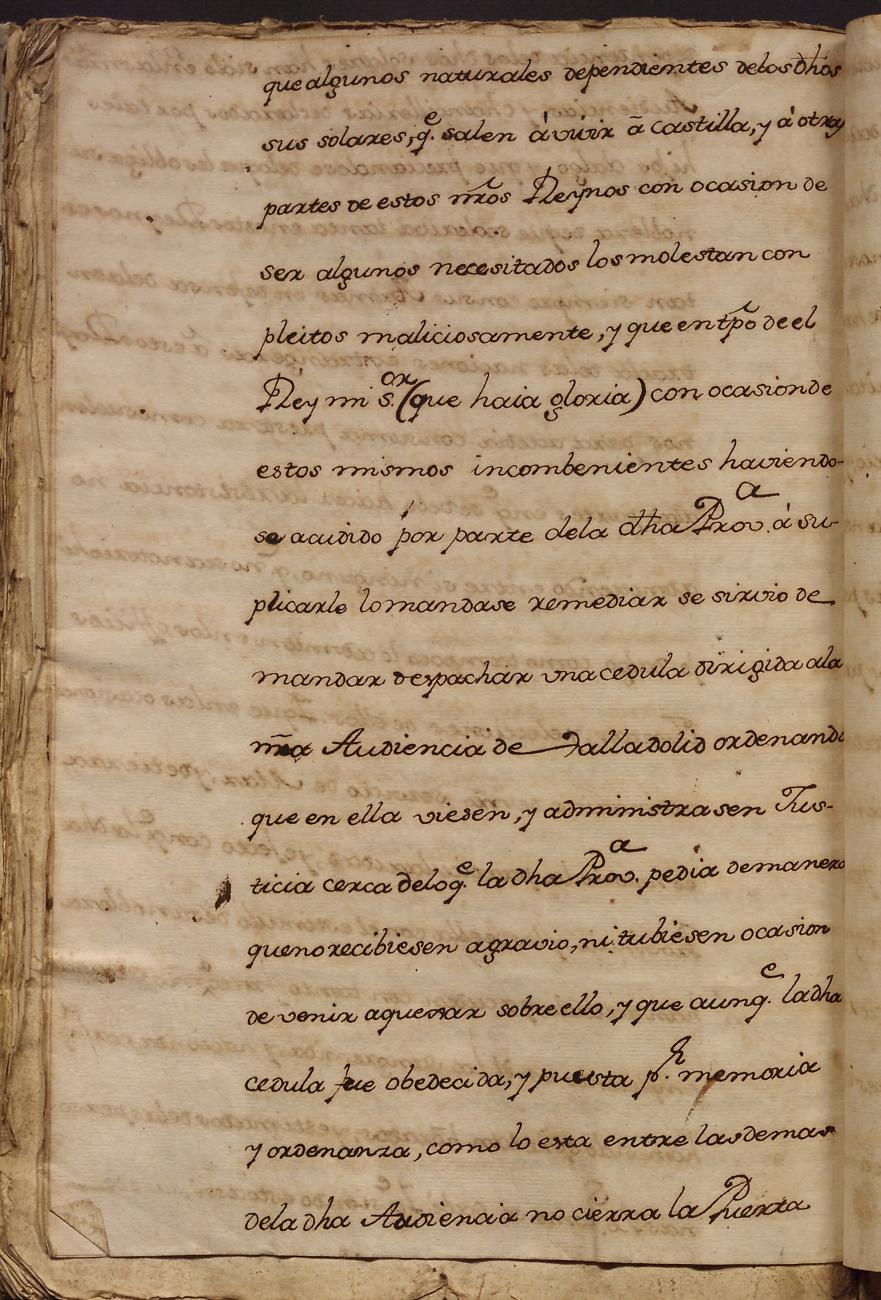 que algunos naturales dependientes delos dhos
sus solares, q.e salen á vivir ā castilla, y á otras
partes de estos nrōs Reynos con ocasion de
ser algunos necesitados los molestan con
pleitos maliciosamente, y que en tpō de el
Rey mi S.or (que haia gloria) con ocasion de
estos mismos incombenientes haviendo-
se acudido por parte dela dha Prov.a á su-
plicarle lo mandase remediar se sirvio de
mandar despachar vna cedula dirigida ala
nrā Audiencia de Valladolid ordenando
que en ella viesen, y administrasen Jus-
ticia cerca delo q.e la dha Prov.a pedia de manera
que no recibiesen agravio, ni tubiesen ocasion
de venir a quexar sobre ello, y que aunq.e la dha
cedula fue obedecida, y puesta p.r memoria
y ordenanza, como lo esta entre las demas
dela dha Audiencia no cierra la Puerta